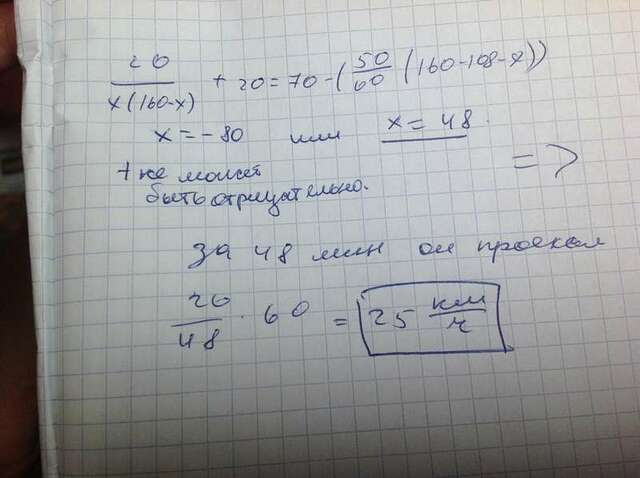 20/x(160-x) + 20 = 70 - (50/60 (160-108-x))
x = -80 или x = 48.
t не может
быть отрицательно. =>
за 48 мин он проехал
20/48 · 60 = 25 км/ч